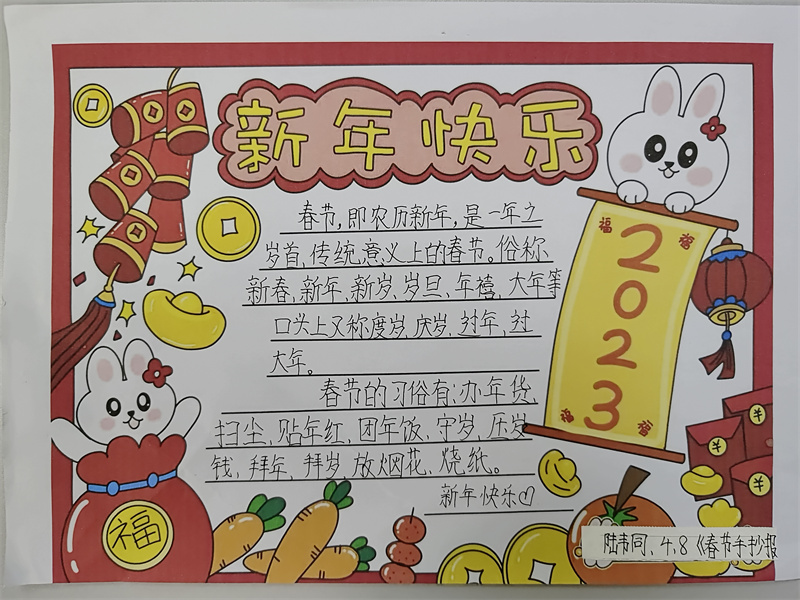 新年快乐
春节,即农历新年,是一年之
岁首、传统意义上的春节。俗称
新春、新年、新岁、岁旦、年禧、大年等
口头上又称度岁、庆岁、过年、过
大年。
春节的习俗有:办年货、
扫尘、贴年红、团年饭、守岁、压岁
钱、拜年、拜岁、放烟花、烧纸。
新年快乐
2023
福
福
福
福
福
陆韦同、4、8《春节手抄报